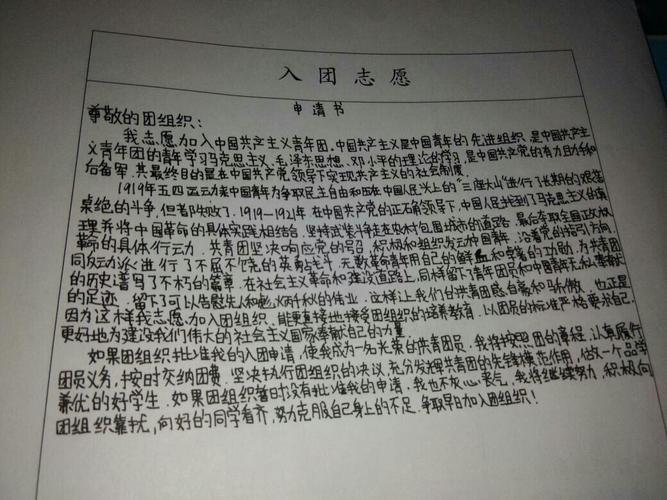 入团志愿
申请书
尊敬的团组织：
我志愿加入中国共产主义青年团。中国共产主义是中国青年的先进组织，是中国共产主
义青年团的青年学习马克思主义、毛泽东思想、邓小平的理论的学习，是中国共产党的有力助手和
后备军，其最终目的是在中国共产党领导下实现共产主义的社会制度。
1919年五四运动来中国青年为争取民主自由和压在中国人民头上的"三座大山"进行了长期的艰苦
卓绝的斗争，但者都失败了，1919-1921年在中国共产党的正确领导下，中国人民找到了马克思主义的真
理并将中国革命的具体实践相结合，坚持武装斗争走在农村包围城市的道路，最后夺取全国政权
革命的具体行动，共青团坚决响应党的号召，积极和组织发动中国青年，沿着党的指引方向，
同反动派进行了不屈不饶的英勇战斗，无数革命青年用自己的鲜血和党的功勋，为共青团
的历史谱写了不朽的篇章，在社会主义革命和建设道路上，同样留下了青年团员和中国青年无私奉献
的足迹，留下可以告慰先人和彪炳千秋的伟业，这样让我们的共青团感自豪和骄傲，也正是
因为这样我志愿加入团组织，能更直接地接受团组织的培养教育，以团员的标准严格要求自己，
更好地为建设我们伟大的社会主义国家奉献自己的力量
如果团组织批准我的入团申请，使我成为一名光荣的共青团员，我将按照团的章程，认真履行
团员义务，按时交纳团费，坚决执行团组织的决议，充分发挥共青团的先锋模范作用，做一个品学
兼优的好学生，如果团组织暂时没有批准我的申请，我也不灰心丧气，我将继续努力，积极向
团组织靠扰，向好的同学看齐，努力克服自己身上的不足，争取早日加入团组织！